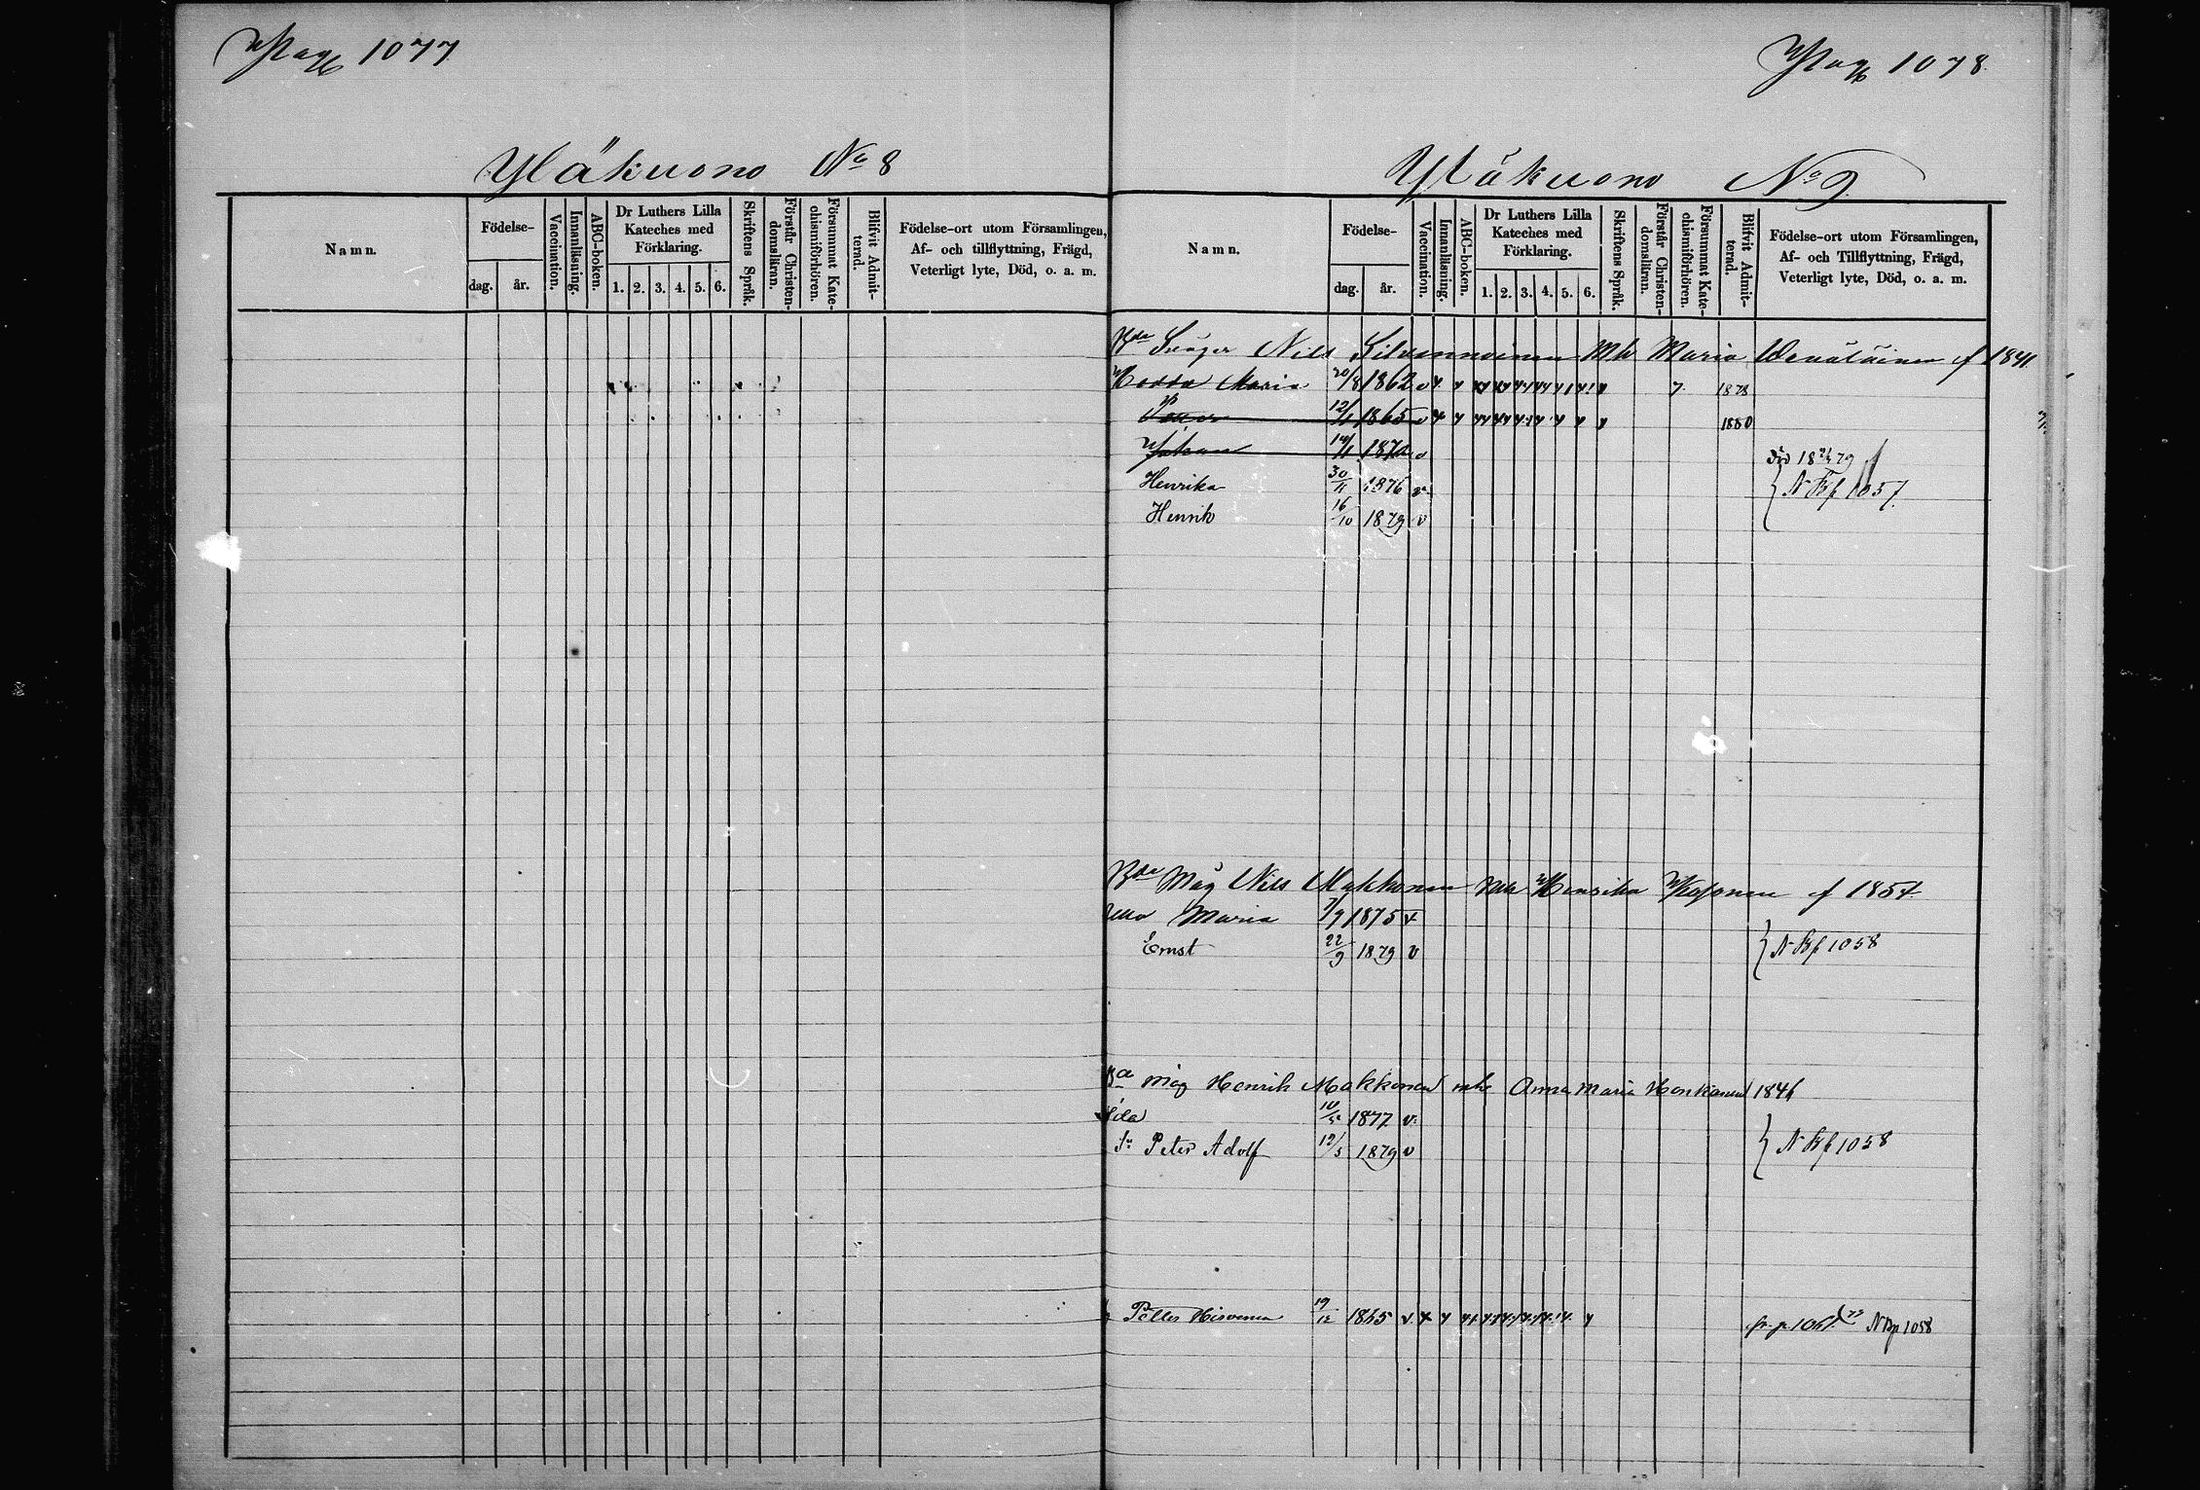 Pag 1077
Yläkuono No 8
Namn.
Födelse-
dag.
år.
Vaccination.
Innanläsning.
ABC-boken.
Dr Luthers Lilla
Kateches med
Förklaring.
1. 2. 3. 4. 5. 6.
Skriftens Språk.
Förstår Christen-
domsläran.
Försummat Kate-
chismiförhören.
Blifvit Admit-
terad.
Födelse-ort utom Församlingen,
Af- och tillflyttning, Frägd,
Veterligt lyte, Död, o. a. m.
Pag 1078
Yläkuono No 9
Namn.
Födelse-
dag.
år.
Vaccination.
Innanläsning.
ABC-boken.
Dr Luthers Lilla
Kateches med
Förklaring.
1. 2. 3. 4. 5. 6.
Skriftens Språk.
Förstår Christen-
domsläran.
Försummat Kate-
chismiförhören.
Blifvit Admit-
terad.
Födelse-ort utom Församlingen,
Af- och Tillflyttning, Frägd,
Veterligt lyte, Död, o. a. m.
Bde Svåger Nils Silvennoinen Mh Maria Wenäläinen f 1841
Maria 20/8 1862 7 1878
12/1 1865 v 1880
Johan 14/1 1874 v död 18 79
Henrika 30/11 1876 v N Bp 1057
Henrik 16/10 1879 v
Bde Måg Nils Makkonen Mh Henrika Kojonen f 1854
Maria 7/9 1875 v
Ernst 22/9 1879 v N Bp 1058
Måg Henrik Makkonen mh Anna Maria Honkanen 1846
Ida 10/5 1877 v
Sn Peter Adolf 12/5 1879 v N Bp 1058
Petter Hirvonen 19/12 1865 fr p 1051 N Bp 1058